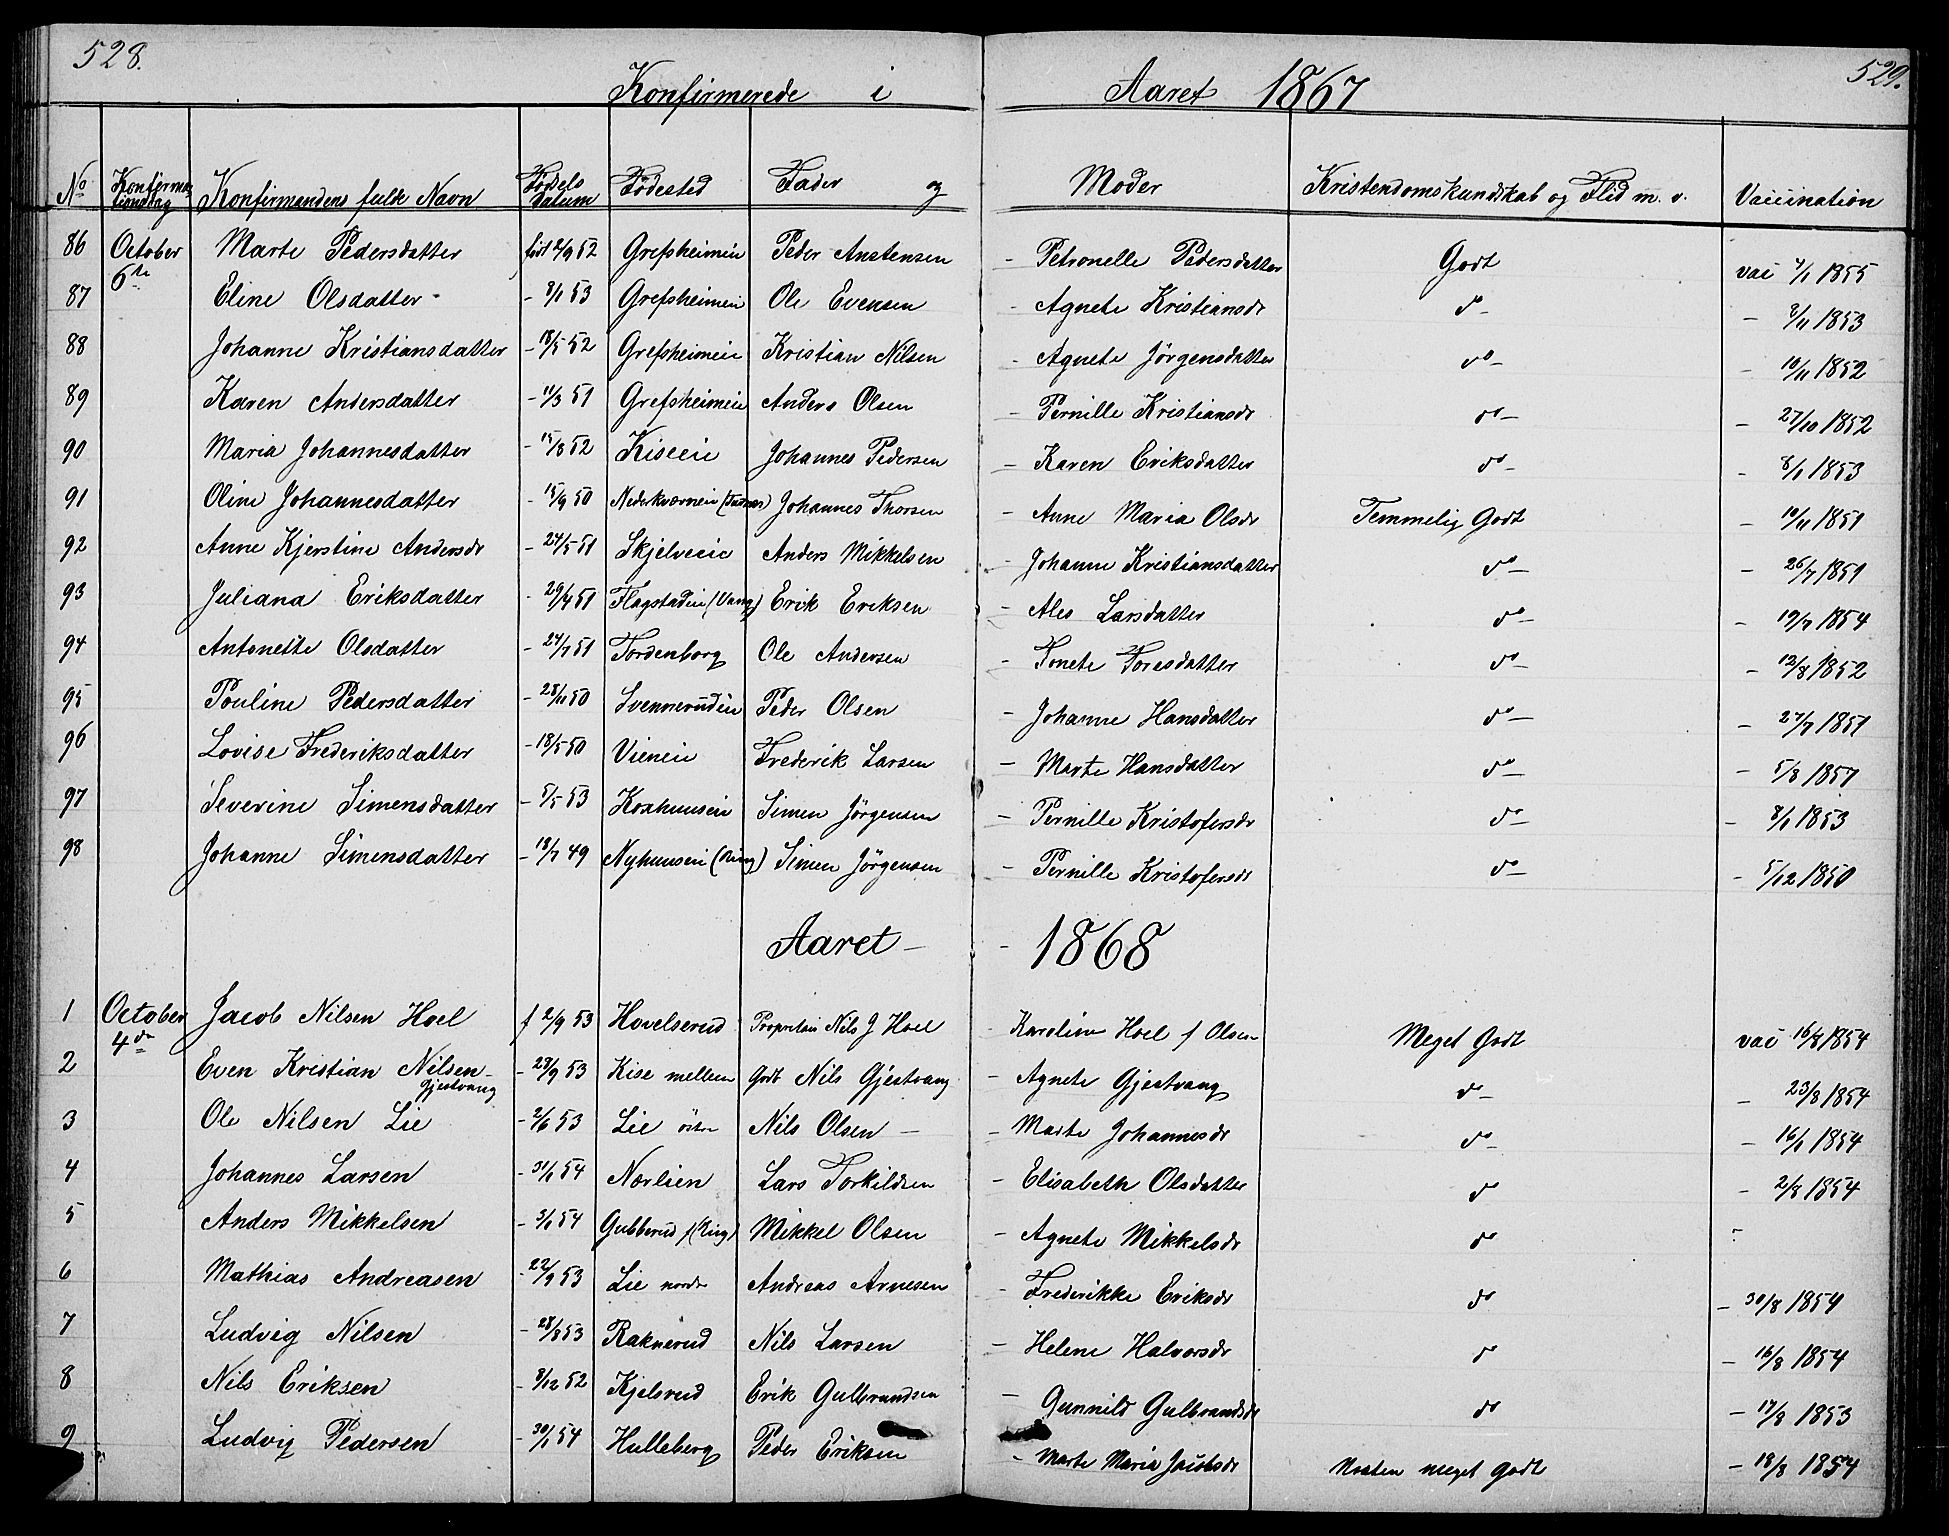 528.
529.
Konfirmerede i Aaret 1867
No Konfirmationsdag Konfirmandens fulde Navn Fødsels datum Fødested Fader og Moder Kristendomskundskab og Flid m. v. Vaccination
86 October 6te Marte Pedersdatter født 2/9 52 Grefsheimeie Peder Anstensen - Petronelle Pedersdatter Godt vac 4/1 1855
87 Eline Olsdatter - 8/1 53 Grefsheimeie Ole Evensen - Agnete Kristiansdr do - 9/11 1853
88 Johanne Kristiansdatter - 18/5 52 Grefsheimeie Kristian Nilsen - Agnete Jörgensdatter do - 10/11 1852
89 Karen Andersdatter - 11/3 51 Grefsheimeie Anders Olsen - Pernille Kristiansdr do - 27/10 1852
90 Maria Johannesdatter - 15/8 52 Kiseeie Johannes Pedersen - Karen Eriksdatter do - 8/1 1853
91 Oline Johannesdatter - 15/9 50 Nederkværneie Johannes Thorsen - Anne Maria Olsdr Temmelig Godt - 10/11 1851
92 Anne Kjerstine Andersdr - 24/5 51 Skjelveeie Anders Mikkelsen - Johanne Kristiansdatter do - 26/7 1851
93 Juliana Eriksdatter - 29/4 51 Flagstadeie (Vang) Erik Eriksen - Ales Larsdatter do - 19/7 1854
94 Antonette Olsdatter - 24/7 51 Tordenborg Ole Andersen - Tonete Toresdatter do - 12/8 1852
95 Pouline Pedersdatter - 28/11 50 Svennerudeie Peder Olsen - Johanne Hansdatter do - 27/7 1851
96 Lovise Frederiksdatter - 18/5 50 Vieneie Frederik Larsen - Marte Hansdatter do - 5/8 1851
97 Severine Simensdatter - 5/5 53 Koxhuuseie Simen Jörgensen - Pernille Kristofersdr do - 8/1 1853
98 Johanne Simensdatter - 18/7 49 Nyhuuseie (Ring) Simen Jörgensen - Pernille Kristofersdr do - 5/12 1850
Aaret - - 1868
1 October 4de Jacob Nilsen Hoel f 2/9 53 Hovelserud Proprietair Nils J Hoel - Karoline Hoel f Olsen Meget Godt vac 16/8 1854
2 Even Kristian Nilsen - Gjestvang - 28/9 53 Kise mellem Gdb Nils Gjestvang - Agnete Gjestvang do - 23/8 1854
3 Ole Nilsen Lie - 2/6 53 Lie östre Nils Olsen - - Marte Johannesdr do - 16/1 1854
4 Johannes Larsen - 31/1 54 Nærlien Lars Torkildsen - Elisabeth Olsdatter do - 2/8 1854
5 Anders Mikkelsen - 3/1 54 Gubberud f (Ring) Mikkel Olsen - Agnete Mikkelsdr do -
6 Mathias Andreasen - 22/9 53 Lie nordre Andreas Arnesen - Frederikke Eriksdr do - 30/8 1854
7 Ludvig Nilsen - 28/8 53 Raknerud Nils Larsen - Helene Halvorsdr do - 16/8 1854
8 Nils Eriksen - 8/12 52 Kjelsrud Erik Gulbrandsen - Gunnild Gulbrandsdr do - 17/8 1853
9 Ludvig Pedersen - 30/1 54 Hulleberg Peder Eriksen - Marte Maria Jacobsdr Næsten meget Godt - 18/8 1854